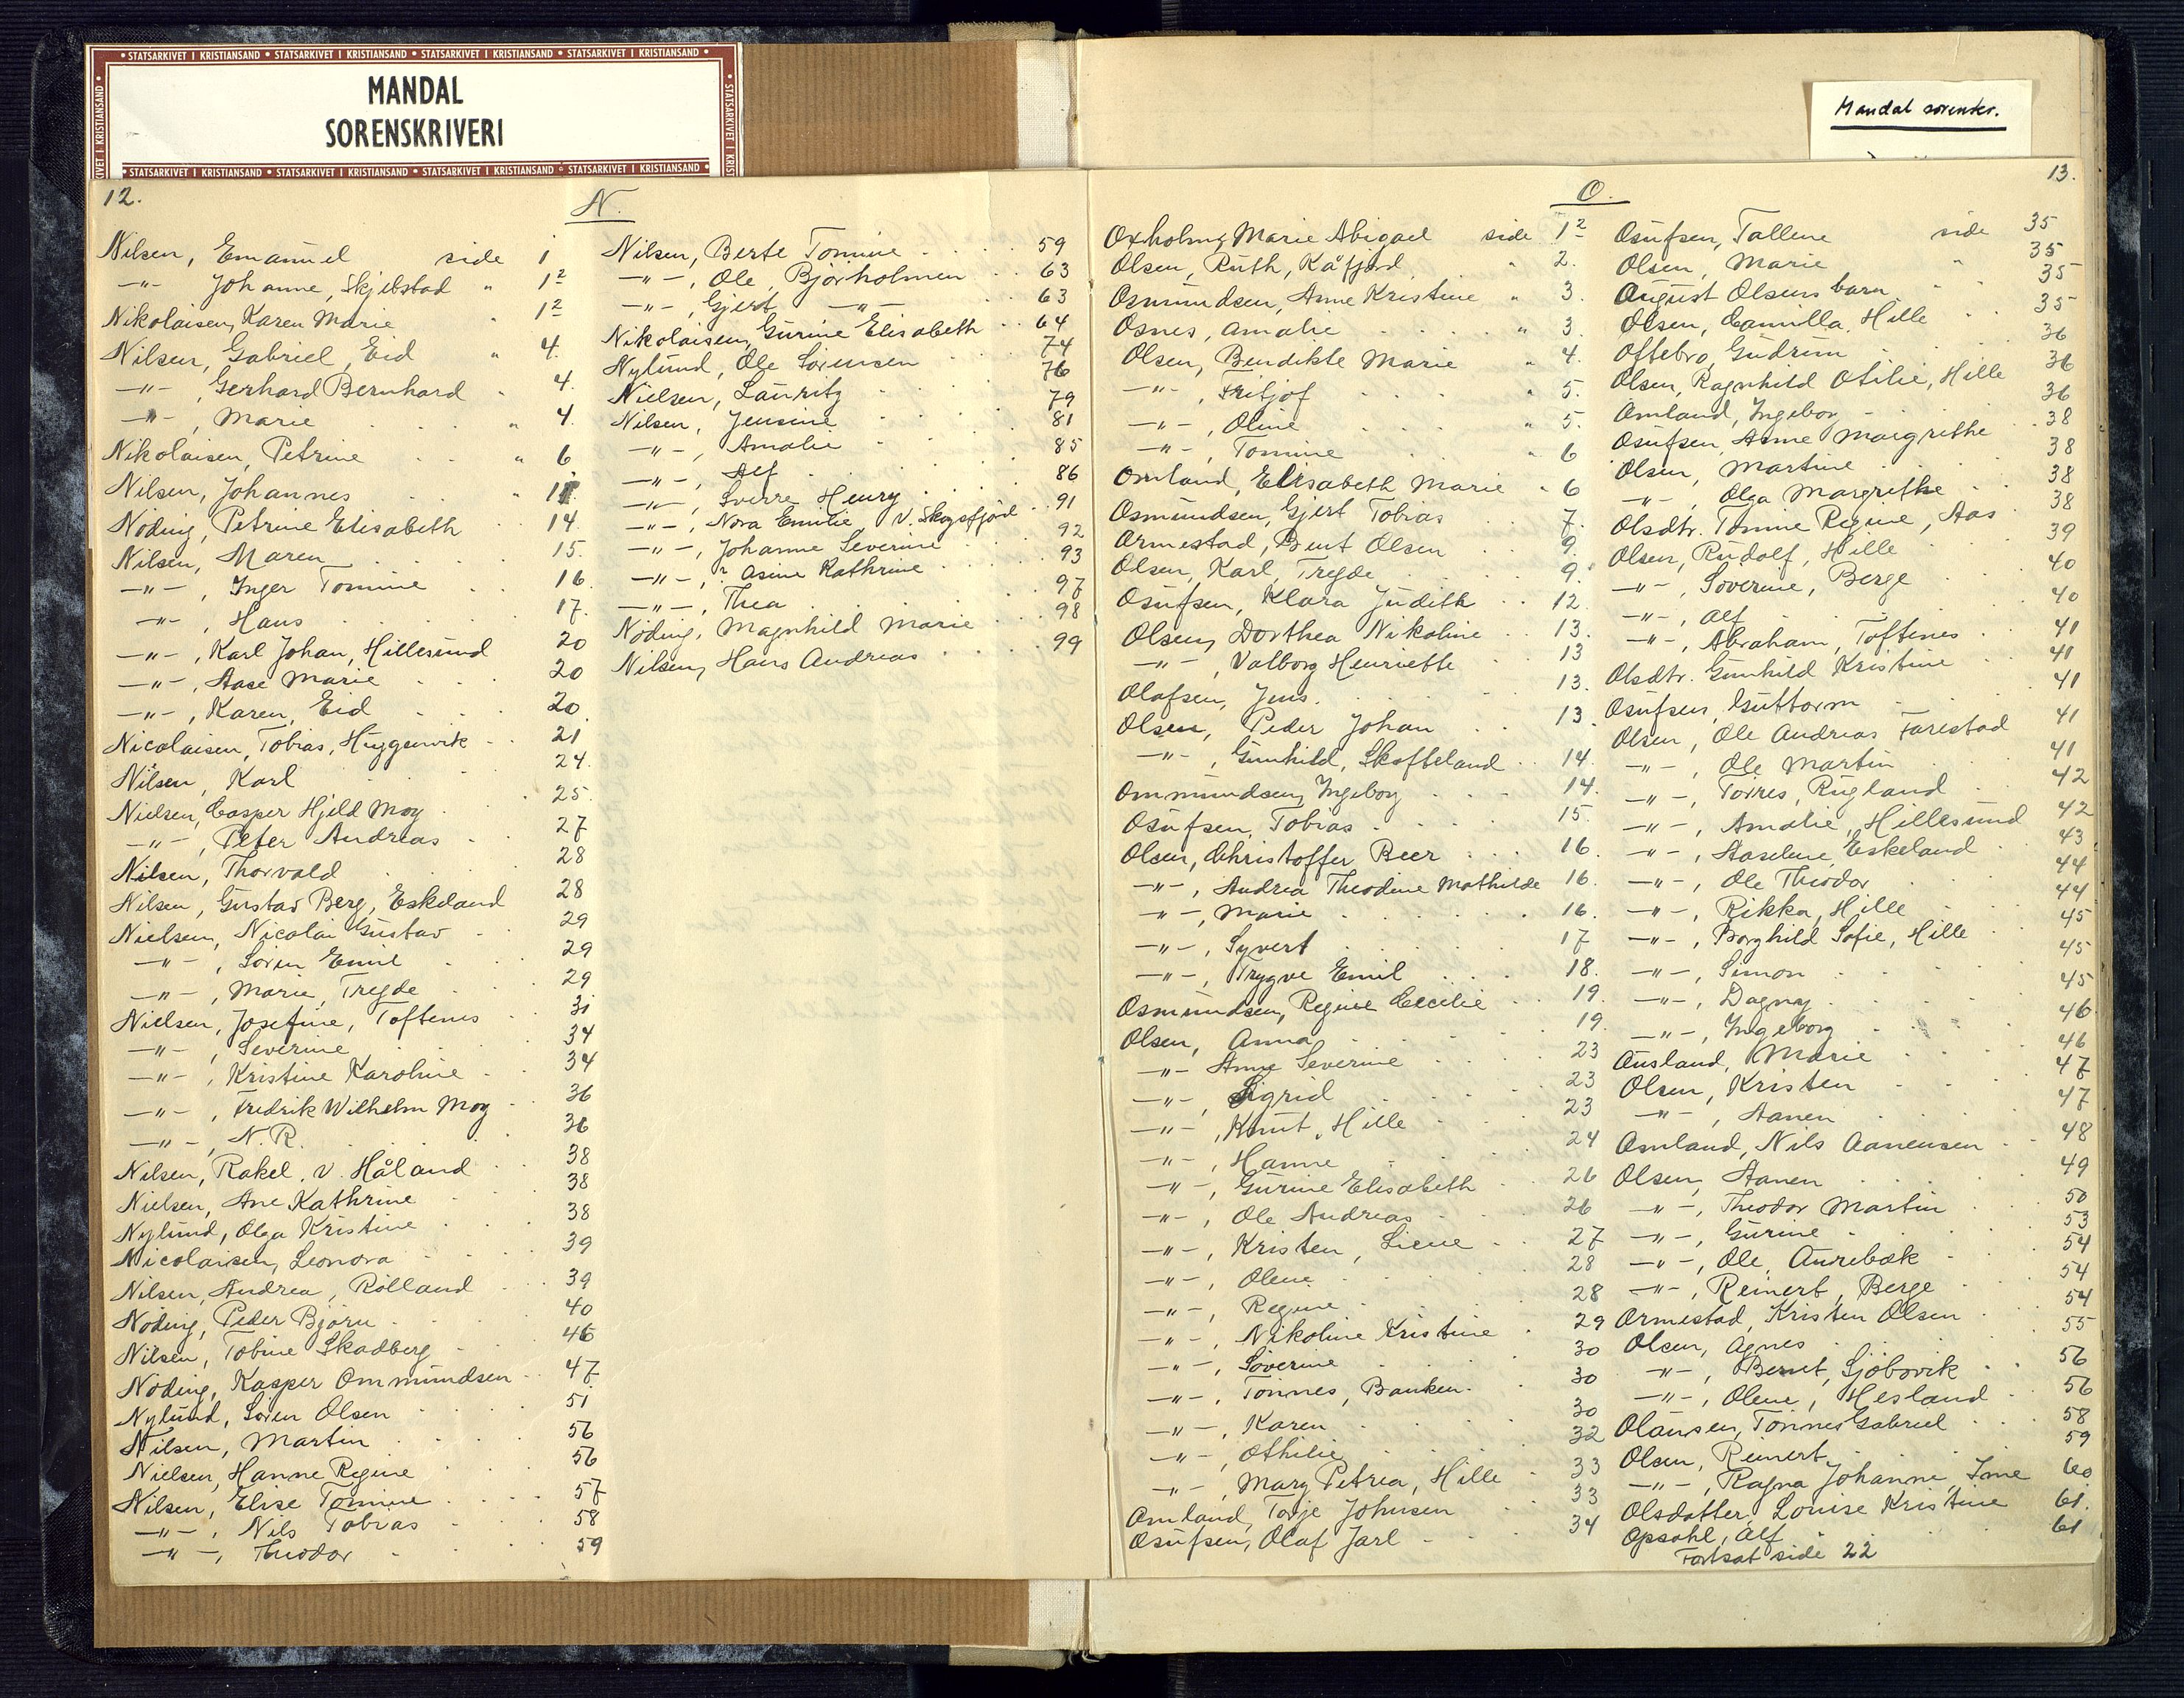 STATSARKIVET I KRISTIANSAND • STATSARKIVET I KRISTIANSAND • STATSARKIVET I KRISTIANSAND • STATSARKIVET I KRISTIANSAND
MANDAL
SORENSKRIVERI
STATSARKIVET I KRISTIANSAND • STATSARKIVET I KRISTIANSAND • STATSARKIVET I KRISTIANSAND • STATSARKIVET I KRISTIANSAND
Mandal sorenskr.
12.
N.
Nilsen, Emanuel side 1
—"— Johanne, Skjebstad " 1²
Nikolaisen, Karen Marie " 1²
Nilsen, Gabriel, Eid " 4.
—"—, Gerhard Bernhard 4.
—"—, Marie " 4.
Nikolaisen, Petrine " 6
Nilsen, Johannes "
Nöding, Petrine Elisabeth 14
Nilsen, Maren 15.
—"—, Inger Tomine 16
—"—, Hans 17.
—"—, Karl Johan, Hillesund 20
—"—, Aase Marie 20
—"—, Karen, Eid 20
Nicolaisen, Tobias, Huggenvik 21
Nilsen, Karl 24.
Nielsen, Casper Hjeld Moy 25.
—"—, Peter Andreas 27
Nilsen, Thorvald 28
Nilsen, Gustav Berg, Eskeland 28
Nielsen, Nicolai Gustav 29
—"—, Sören Emil 29
—"—, Marie, Tregde 29
Nielsen, Josefine, Toftenes 31
—"—, Severine 34
—"—, Kristine Karoline 34
—"—, Fredrik Wilhelm Moy 36
—"—, N. R. 36
Nilsen, Rakel, v. Håland 38
Nielsen, Ane Kathrine 38
Nylund, Olga Kristine 38
Nicolaisen, Leonora 39
Nilsen, Andrea, Rölland 39
Nöding, Peder Björn 40
Nilsen, Tobine Skadberg 46
Nöding, Kasper Ommundsen 47
Nylund, Sören Olsen 51
Nilsen, Martin 56
Nielsen, Hanne Regine 56
Nilsen, Elise Tomine 57
—"—, Nils Tobias 58
—"—, Theodor 59
Nilsen, Berte Tomine 59
—"—, Ole, Björholmen 63
—"—, Gjert —"— 63
Nikolaisen, Gurine Elisabeth 64
Nylund, Ole Sörensen 74
Nielsen, Lauritz 76
Nilsen, Jensine 79
—"—, Amalie 81
—"—, Alf 85
—"—, Sverre Henry 86
—"—, Nora Emilie, v. Skogsfjord 91
—"—, Johanne Severine 92
—"—, ? Asine Kathrine 93
—"—, Thea 97
Nöding, Magnhild Marie 98
Nilsen, Hans Andreas 99
13.
O.
Oxholm, Marie Abigael side 1²
Olsen, Ruth, Kåfjord " 2.
Osmundsen, Anne Kristine " 3.
Osnes, Amalie " 3.
Olsen, Bendikte Marie " 4.
—"—, Fritjof " 5.
—"—, Oline " 5.
—"—, Tomine " 6
Omland, Elisabeth Marie 6
Osmundsen, Gjert Tobias 7.
Ormestad, Bent Olsen 9.
Olsen, Karl, Tregde 9.
Osufsen, Klara Judith 12.
Olsen, Dorthea Nikoline 13.
—"—, Valborg Henriette 13
Olafsen, Jens. 13.
Olsen, Peder Johan 13.
—"—, Gunhild, Skofteland 14.
Ommundsen, Ingeborg 14.
Osufsen, Tobias 15.
Olsen, Christoffer Beer 16.
—"—, Andrea Theodine Mathilde 16.
—"—, Marie 16.
—"—, Syvert 17
—"—, Trygve Emil 18.
Osmundsen, Regine Cecilie 19.
Olsen, Anna 19.
—"— Anne Severine 23
—"—, Sigrid 23
—"—, Knut, Hille 23
—"—, Hanne 24
—"—, Gurine Elisabeth 26
—"—, Ole Andreas 26
—"—, Kristen, Liene 27
—"—, Olene 28
—"—, Regine 28
—"—, Nikoline Kristine 29
—"—, Soverine 30
—"—, Tönnes, Banken. 30
—"—, Karen 30
—"—, Othilie 32
—"—, Mary Petrea, Hille 33
Omland, Torje Johnsen 33
Osufsen, Olaf Jarl 34
Osufsen, Tallene side 35
Olsen, Marie " 35
August Olsens barn 35
Olsen, Camilla, Hille 35
Oftebro, Gudrun 36
Olsen, Ragnhild Otilie, Hille 36
Omland, Ingebor 36
Osufsen, Anne Margrethe 38
Olsen, Martine 38
—"—, Olga Margrethe 38
Olsdtr. Tomine Regine, Aas 38
Olsen, Rudolf, Hille 39
—"—, Soverine, Berge 40
—"—, Alf 40
—"—, Abraham, Toftenes 41
Olsdtr. Gunhild Kristine 41
Osufsen, Guttorm 41
Olsen, Ole Andreas Farestad 41
—"—, Ole Martin 41
—"—, Torres, Rugland 42
—"—, Amalie, Hillesund 42
—"—, Aaselene, Eskeland 43
—"—, Ole Theodor 44
—"—, Rikka, Hille 44
—"—, Borghild Sofie, Hille 45
—"—, Simon 45
—"—, Dagny 45
—"—, Ingeborg 46
Ausland, Marie 46
Olsen, Kristen 47
—"—, Aanen 47
Omland, Nils Aanensen 48
Olsen, Aanen 49
—"—, Theodor Martin 50
—"—, Gurine 53
—"—, Ole, Aurebæk 54
—"—, Reinert, Berge 54
Ormestad, Kristen Olsen 54
Olsen, Agnes 55
—"—, Bernt, Sjöbovik 56
—"—, Olene, Hesland 56
Olausen, Tönnes Gabriel 58
Olsen, Reinert 59
—"—, Ragna Johanne, Ime 60
Olsdatter, Louise Kristine 61.
Opsahl, Alf 61
Fortsat side 22